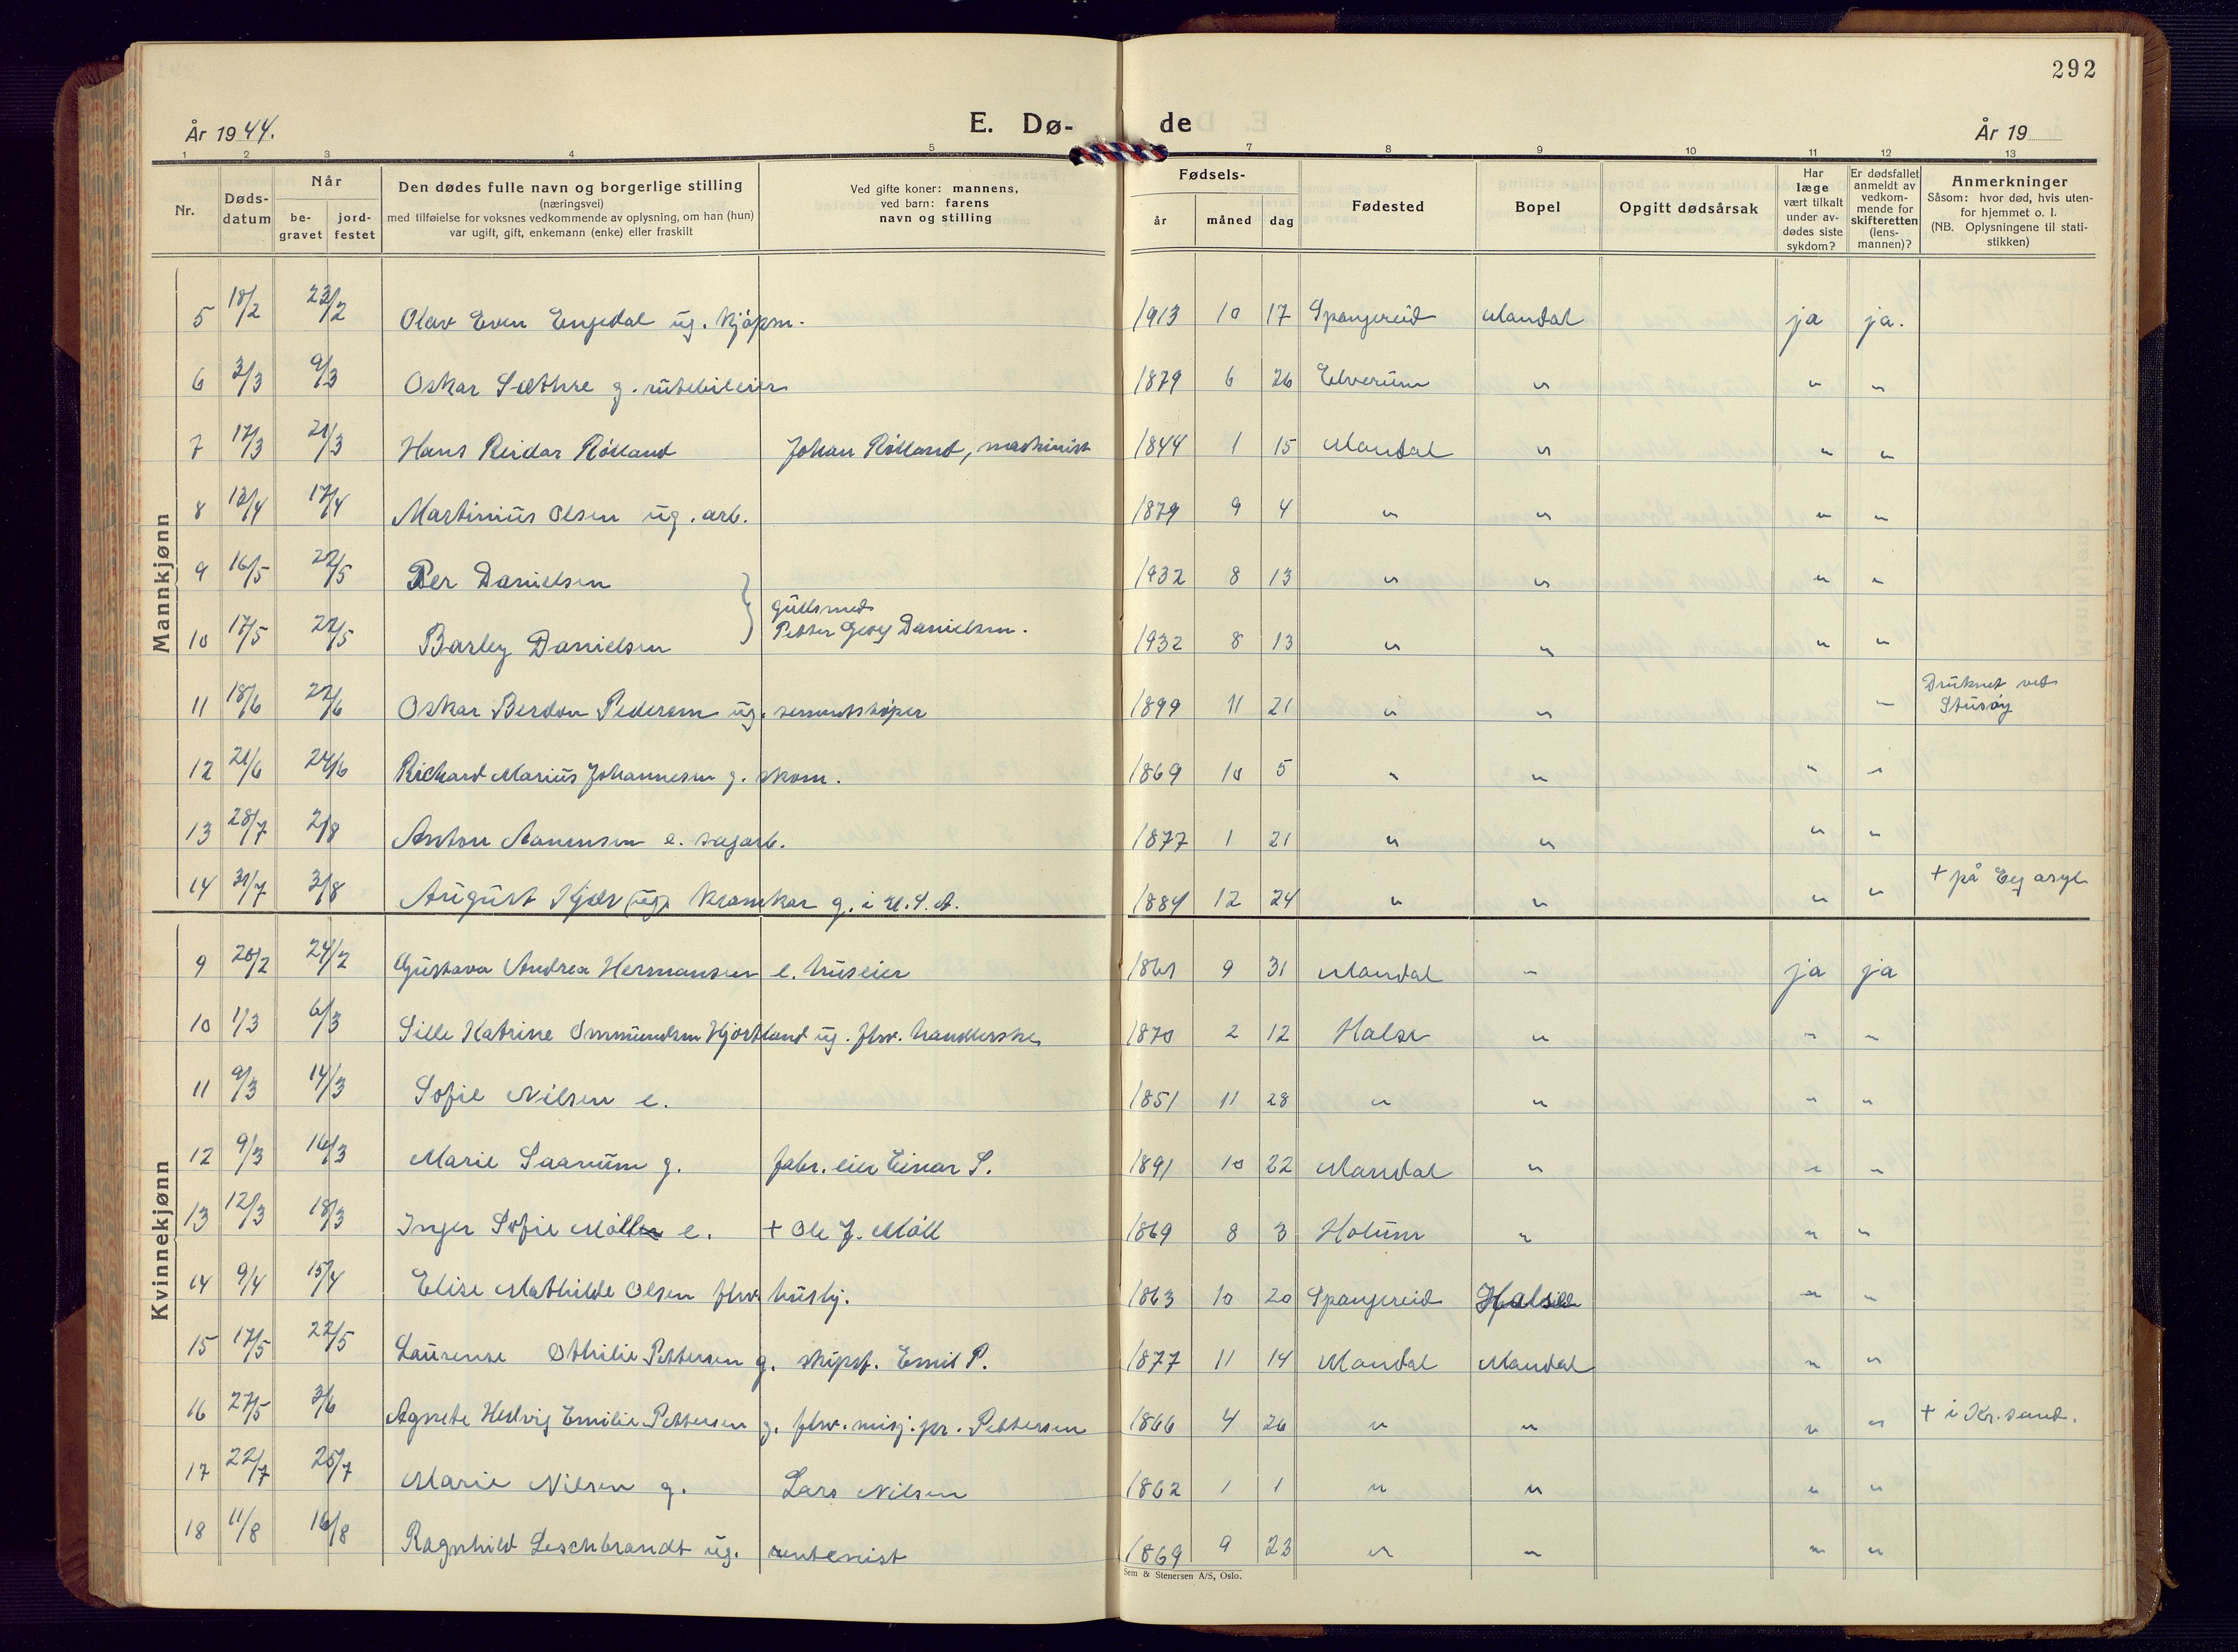 292
År 1944.
E. Dø-
de
År 19
1 2 3 4 5 7 8 9 10 11 12 13
Nr.
Døds-
datum
Når
be-
gravet
jord-
festet
Den dødes fulle navn og borgerlige stilling
(næringsvei)
med tilføielse for voksnes vedkommende av oplysning, om han (hun)
var ugift, gift, enkemann (enke) eller fraskilt
Ved gifte koner: mannens,
ved barn: farens
navn og stilling
Fødsels-
år måned dag
Fødested
Bopel
Opgitt dødsårsak
Har
læge
vært tilkalt
under av-
dødes siste
sykdom?
Er dødsfallet
anmeldt av
vedkom-
mende for
skifteretten
(lens-
mannen)?
Anmerkninger
Såsom: hvor død, hvis uten-
for hjemmet o. l.
(NB. Oplysningene til stati-
stikken)
Mannkjønn
5 18/2 23/2 Olav Even Engedal ug. kjøpm. 1913 10 17 Spangereid Mandal ja ja.
6 3/3 9/3 Oskar Sæthre g. rutebileier 1879 6 26 Elverum " " "
7 17/3 21/3 Hans Reidar Rölland Johan Rölland, maskinist 1844 1 15 Mandal " " "
8 13/4 17/4 Martinius Olsen ug. arb. 1879 9 4 " " " "
9 16/5 22/5 Per Danielsen 1932 8 13 " " " "
gullsmed
10 17/5 22/5 Barley Danielsen } Petter Georg Danielsen. 1932 8 13 " " " "
11 18/6 22/6 Oskar Berdon Pedersen ug. sementstøper 1899 11 21 " " " Druknet ved
Stusøy
12 21/6 24/6 Richard Marius Johannesen g. skom. 1869 10 5 " " " "
13 28/7 2/8 Anton Aanensen e. sagarb. 1877 1 21 " " " "
14 31/7 3/8 August Kjær (ug) g. i U.S.A. 1884 12 24 " " " " + på Eg asyl
Kvinnekjønn
9 20/2 24/2 Gustava Andrea Hermansen e. huseier 1861 9 31 Mandal " ja ja
10 1/3 6/3 Sille Katrine Ommundsen Hjortland ug. fhv. handlerske 1870 2 12 Halse " " "
11 9/3 14/3 Sofie Nilsen e. 1851 11 28 " " " "
12 9/3 16/3 Marie Saanum g. fabr. eier Einar S. 1891 10 22 Mandal " " "
13 12/3 18/3 Inger Sofie Möll e. + Ole J. Möll 1869 8 3 Holum " " "
14 9/4 15/4 Elise Mathilde Olsen fhv. husbj. 1863 10 20 Spangereid Halse " "
15 17/5 22/5 Laurense Othilie Pettersen g. skipsf. Emil P. 1877 11 14 Mandal Mandal " "
16 27/5 3/6 Agnete Hedvig Emilie Pettersen g. fhv. misj. pr. Pettersen 1866 4 26 " " " " + i Kr. sand.
17 22/7 25/7 Marie Nilsen g. Lars Nilsen 1862 1 1 " " " "
18 11/8 16/8 Ragnhild Leschbrandt ug. rentenist 1869 9 23 " " " "
Sem & Stenersen A/S, Oslo.